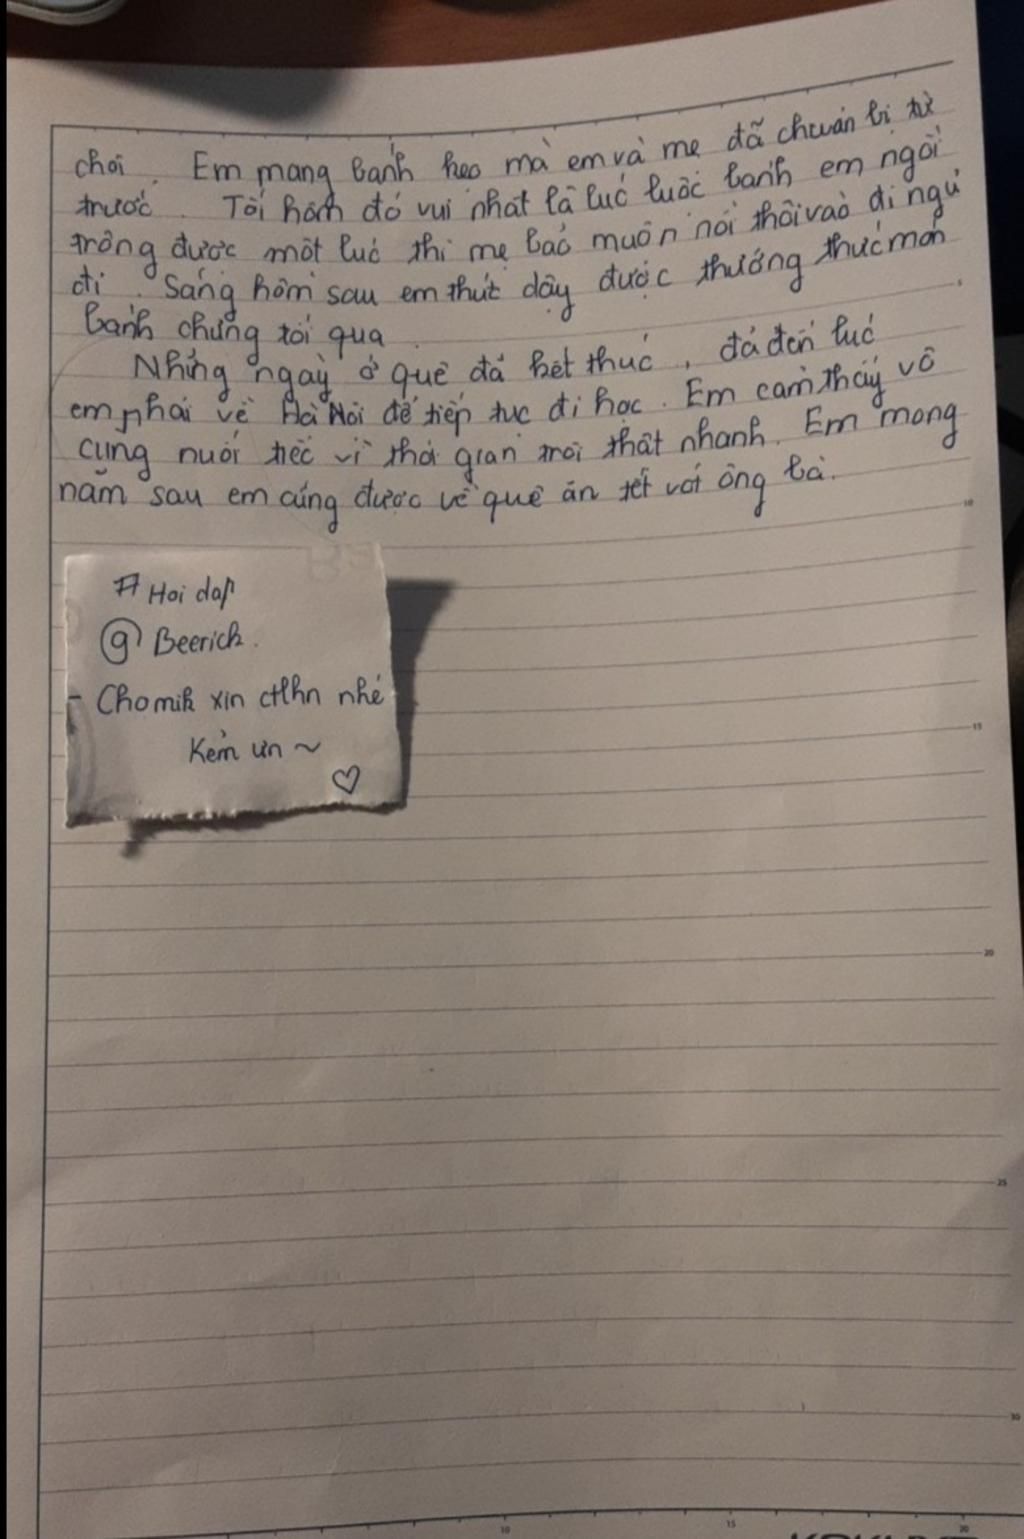 chơi. Em mang bánh kẹo mà em và mẹ đã chuẩn bị từ
trước. Tối hôm đó vui nhất là lúc luộc bánh em ngồi
trông được một lúc thì mẹ bảo muộn rồi thôi vào đi ngủ
đi. Sáng hôm sau em thức dậy được thưởng thức món
bánh chưng tối qua.
Những ngày ở quê đã kết thúc, đã đến lúc
em phải về Hà Nội để tiếp tục đi học. Em cảm thấy vô
cùng nuối tiếc vì thời gian trôi thật nhanh. Em mong
năm sau em cũng được về quê ăn tết với ông bà.
# Hoi dap
@ Beerick.
- Cho mik xin ctlhn nhé
Kẻm ưn ~
♡
5
10
15
20
25
30
10
15
20